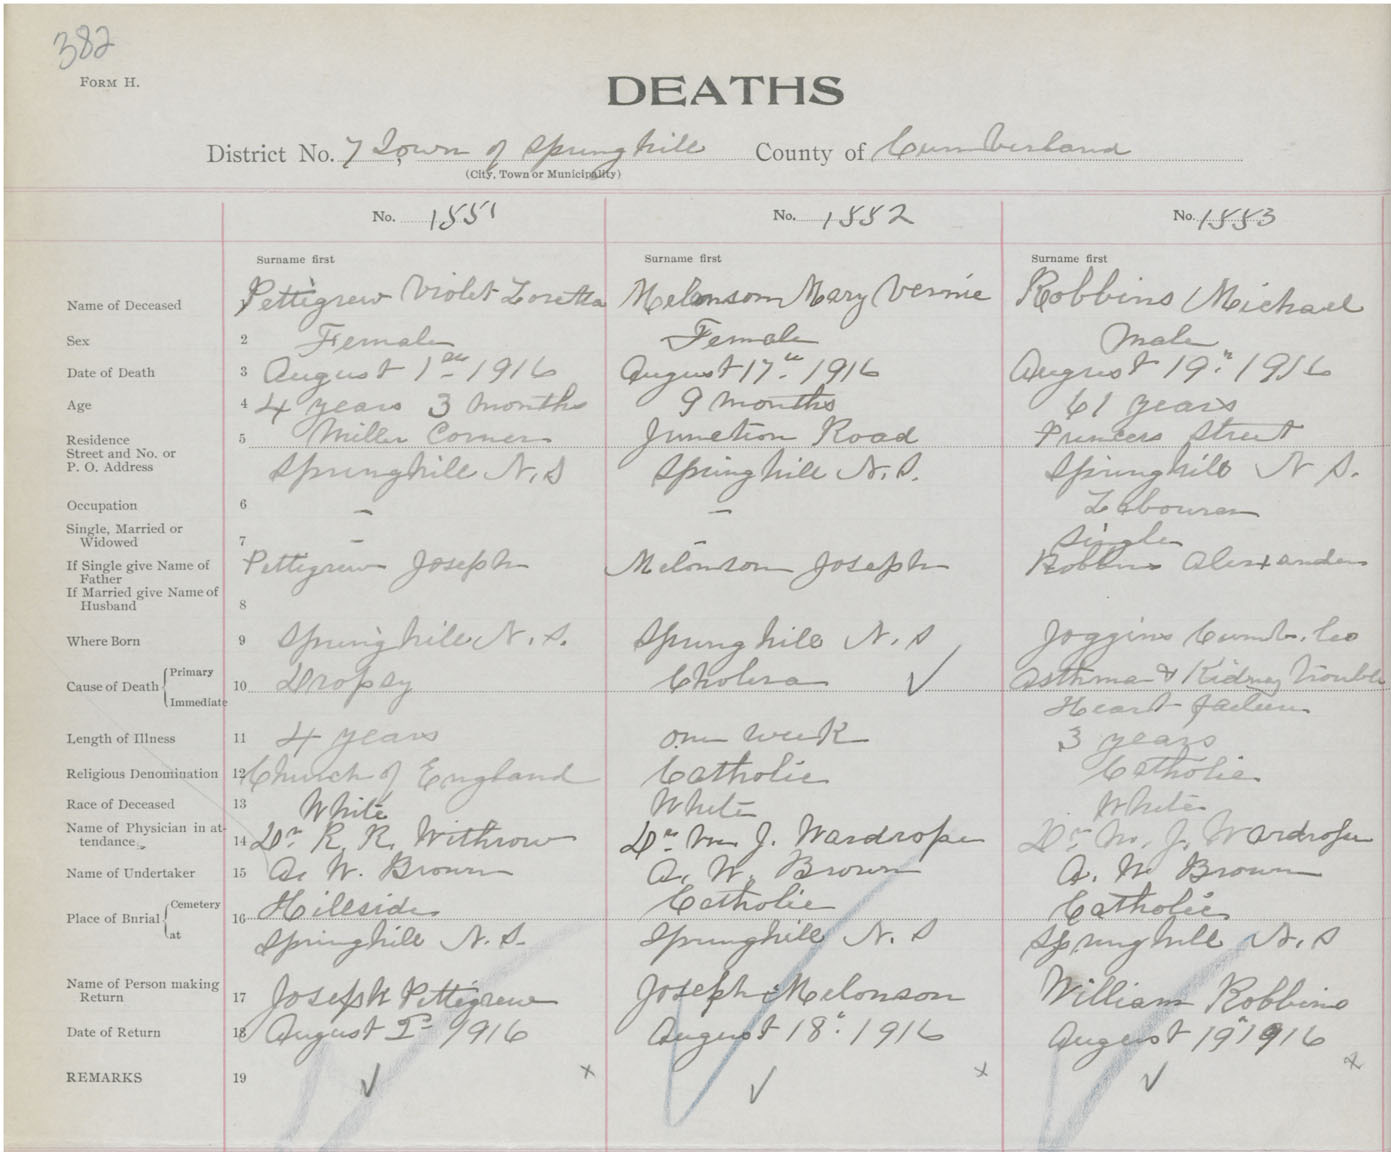 382
FORM H.
DEATHS
District No. 7 Town of Springhill County of Cumberland
(City, Town or Municipality)
No. 1551 No. 1552 No. 1553
Surname first Surname first Surname first
Name of Deceased 1 Pettigrew Violet Loretta Melonson Mary Vernie Robbins Michael
Sex 2 Female Female Male
Date of Death 3 August 1st 1916 August 17th 1916 August 19th 1916
Age 4 4 years 3 months 9 months 61 years
Residence 5 Miller Corner Junction Road Princess Street
Street and No. or
P. O. Address Springhill N.S Springhill N.S. Springhill N S.
Occupation 6 – – Labourer
Single, Married or
Widowed 7 – – Single
If Single give Name of Pettigrew Joseph Melonson Joseph Robbins Alexander
Father
If Married give Name of
Husband 8
Where Born 9 Springhill N.S. Springhill N.S Joggins Cumb. Co
Cause of Death Primary 10 Dropsy Cholera ✓ Asthma & Kidney Trouble
Immediate Heart failure
Length of Illness 11 4 years one week 3 years
Religious Denomination 12 Church of England Catholic Catholic
Race of Deceased 13 White White White
Name of Physician in at-
tendance 14 Dr. R. R. Withrow Dr Wm J. Wardrope Dr M. J. Wardrope
Name of Undertaker 15 A. W. Brown A. W. Brown A. W. Brown
Place of Burial Cemetery 16 Hillside Catholic Catholic
at Springhill N.S. Springhill N.S Springhill N.S
Name of Person making
Return 17 Joseph Pettigrew Joseph Melonson William Robbins
Date of Return 18 August 1916 August 18th 1916 August 19th 1916
REMARKS 19 ✓ x ✓ x ✓ x